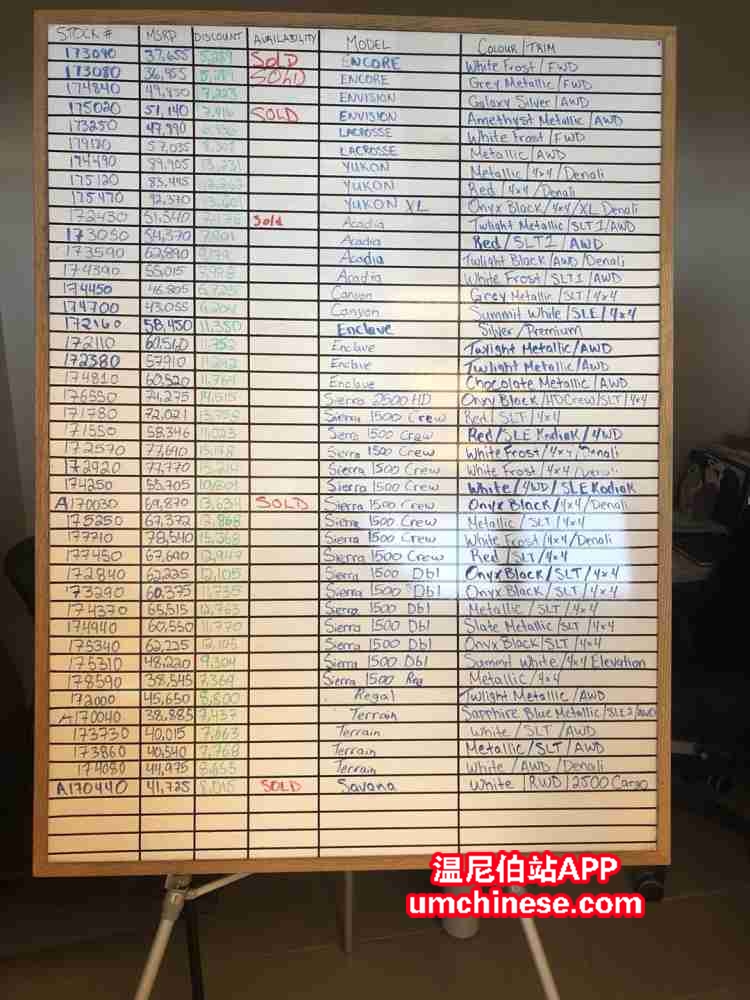 STOCK # MSRP DISCOUNT AVAILABILITY MODEL COLOUR/TRIM
173090 37,655 SOLD ENCORE White Frost/FWD
173080 36,955 SOLD ENCORE Grey Metallic/FWD
174840 49,950 ENVISION Galaxy Silver/AWD
175020 51,140 7,416 SOLD ENVISION Amethyst Metallic/AWD
173250 49,990 LACROSSE White Frost/FWD
179120 57,035 LACROSSE Metallic/AWD
174490 89,905 13,231 YUKON Metallic/4x4/Denali
175120 83,445 YUKON Red/4x4/Denali
175470 92,370 13,601 YUKON XL Onyx Black/4x4/XL Denali
172430 51,540 Sold Acadia Twlight Metallic/SLT1/AWD
173050 54,370 7,901 Acadia Red/SLT2/AWD
173590 62,890 Acadia Twlight Black/AWD/Denali
174390 55,015 Acadia White Frost/SLT1/AWD
174450 46,805 6,725 Canyon Grey Metallic/SLT/4x4
174700 43,055 6,204 Canyon Summit White/SLE/4x4
172160 58,450 11,380 Enclave Silver/Premium
172110 60,560 11,752 Enclave Twlight Metallic/AWD
172380 57,910 11,242 Enclave Twlight Metallic/AWD
174810 60,520 11,764 Enclave Chocolate Metallic/AWD
176550 74,275 14,515 Sierra 2500 HD Onxy Black/HDCrew/SLT/4x4
171780 72,021 Sierra 1500 Crew Red/SLT/4x4
171550 58,346 11,023 Sierra 1500 Crew Red/SLE Kodiak/4WD
172570 77,690 15,198 Sierra 1500 Crew White Frost/4x4/Denali
172920 77,770 15,214 Sierra 1500 Crew White Frost/4x4/Denali
174250 55,705 10,801 Sierra 1500 Crew White/4WD/SLE Kodiak
A170030 69,870 13,634 SOLD Sierra 1500 Crew Onyx Black/4x4/Denali
175250 67,372 12,868 Sierra 1500 Crew Metallic/SLT/4x4
177710 78,540 15,368 Sierra 1500 Crew White Frost/4x4/Denali
177450 67,690 12,947 Sierra 1500 Crew Red/SLT/4x4
172840 62,225 12,105 Sierra 1500 Dbl Onyx Black/SLT/4x4
173290 60,375 11,735 Sierra 1500 Dbl Onyx Black/SLT/4x4
174370 65,515 12,763 Sierra 1500 Dbl Metallic/SLT/4x4
174940 60,550 11,770 Sierra 1500 Dbl Slate Metallic/SLT/4x4
175340 62,225 12,105 Sierra 1500 Dbl Onyx Black/SLT/4x4
175310 48,220 9,304 Sierra 1500 Dbl Summit White/4x4 Elevation
178590 38,545 7,369 Sierra 1500 Reg Metallic/4x4
172000 45,650 8,800 Regal Twlight Metallic/AWD
A170040 38,885 7,437 Terrain Sapphire Blue Metallic/SLE2/AWD
173730 40,015 7,663 Terrain White/SLT/AWD
173860 40,540 7,768 Terrain Metallic/SLT/AWD
174080 44,975 8,655 Terrain White/AWD/Denali
A170440 41,725 8,015 SOLD Savana White/RWD/2500 Cargo
温尼伯站APP
umchinese.com